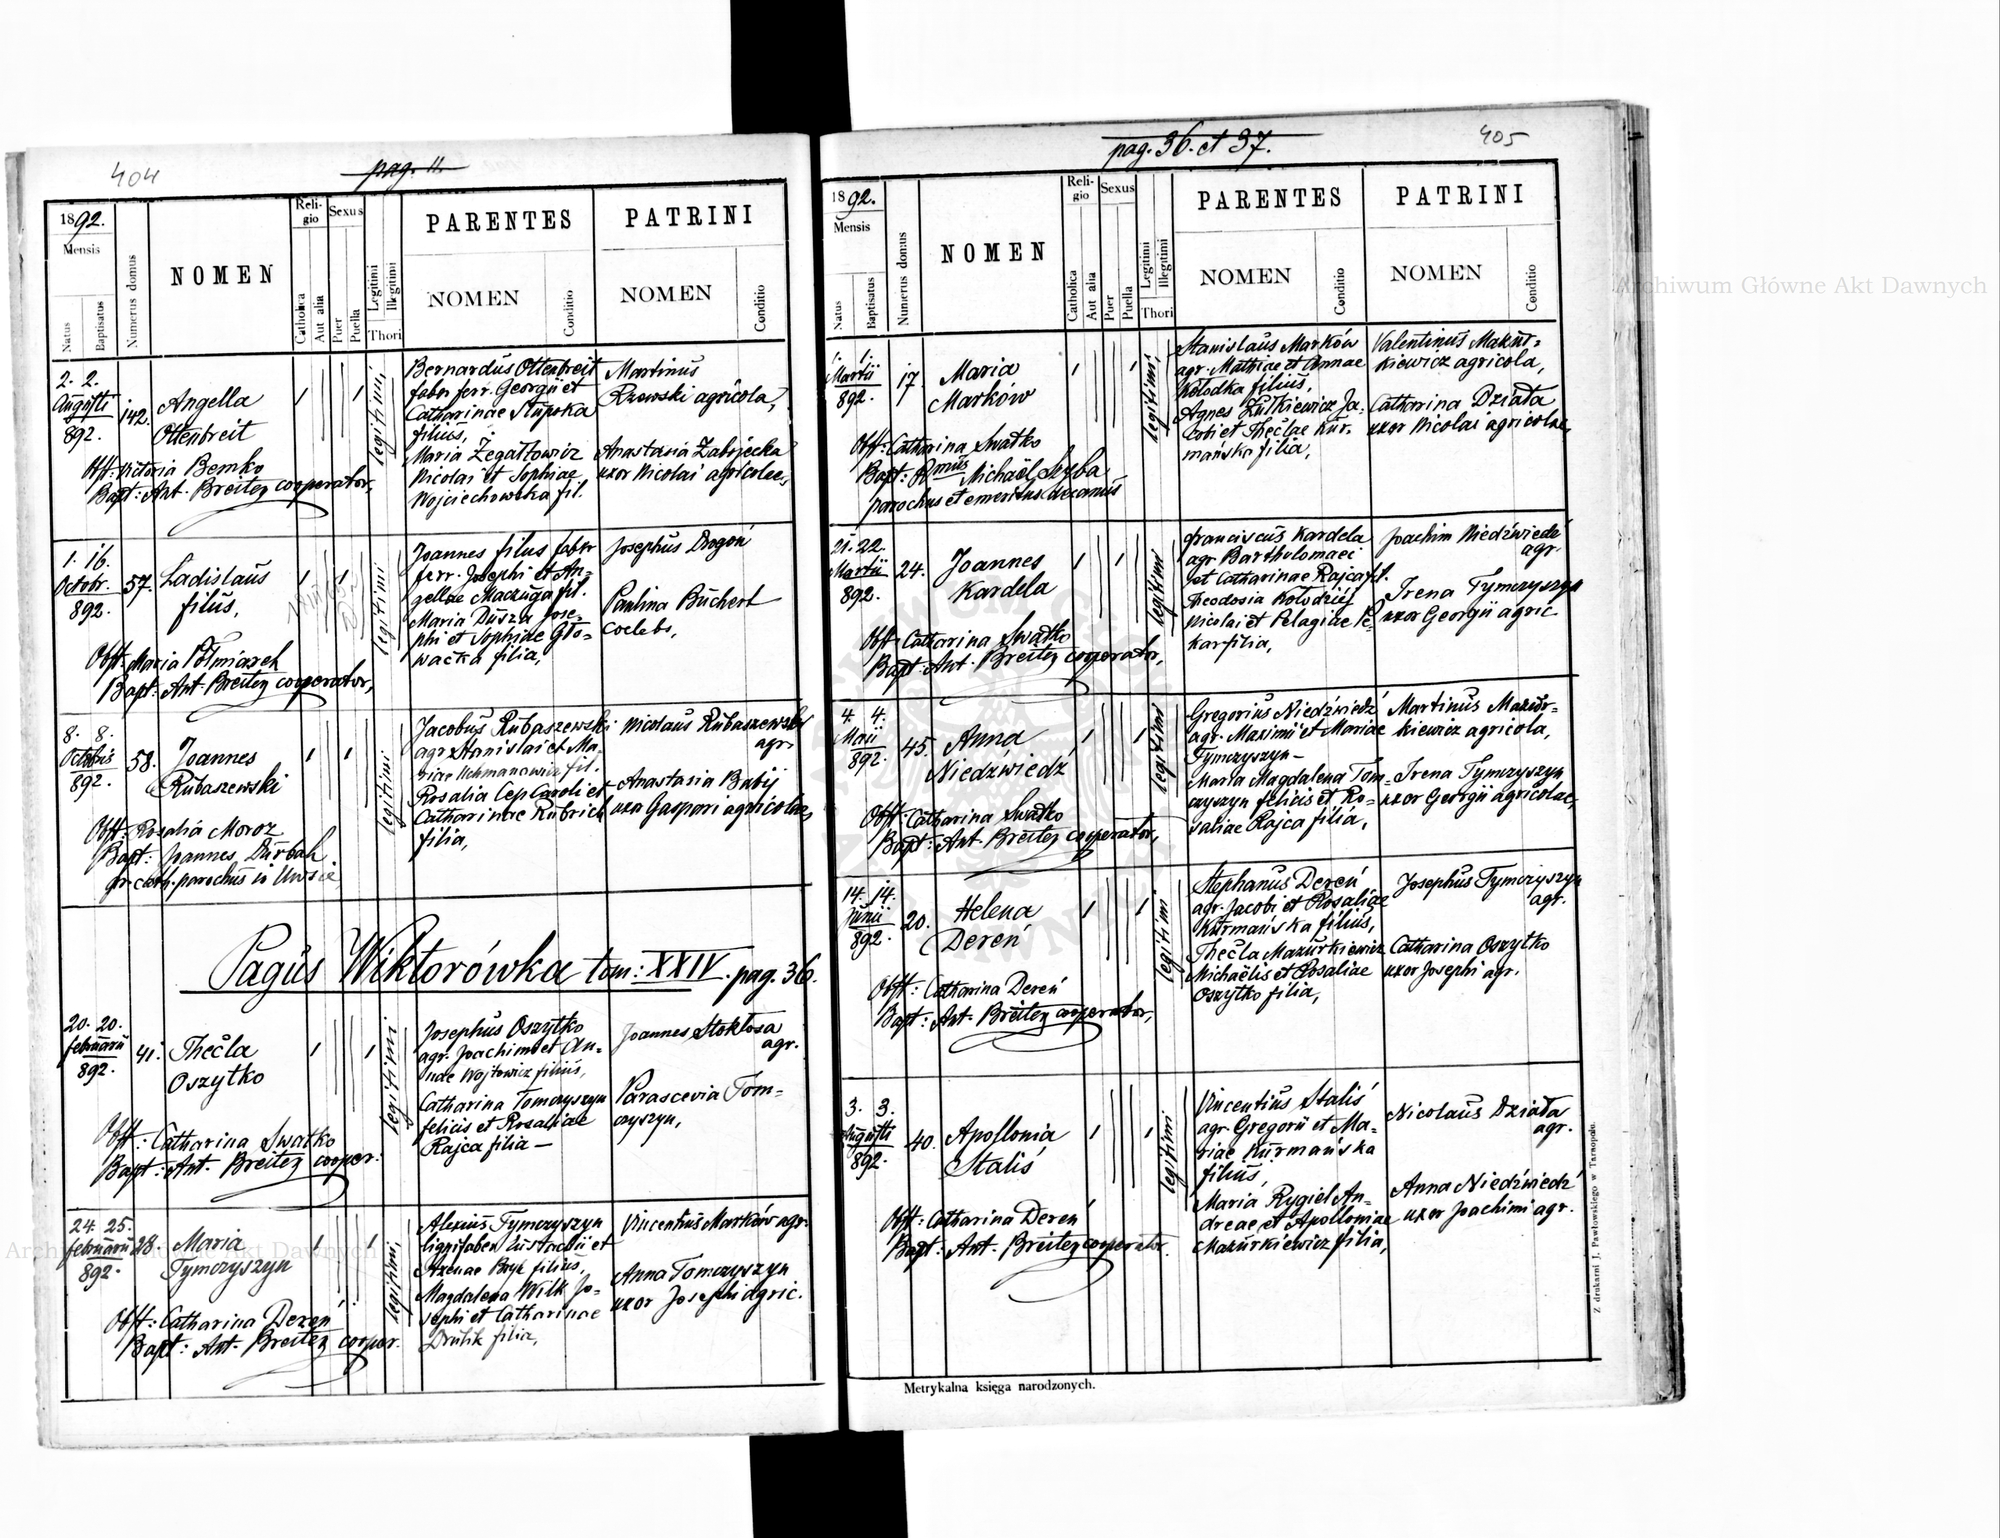 404
pag. 11.
1892.
Mensis
Natus
Baptisatus
Numerus domus
NOMEN
Religio
Catholica
Aut alia
Sexus
Puer
Puella
Legitimi
Illegitimi
Thori
PARENTES
NOMEN
Conditio
PATRINI
NOMEN
Conditio
2. 2.
Augusti
892.
142.
Angella
Ottenbreit
legitimi,
Bernardus Ottenbreit
faber ferr. Georgii et
Catharinae Stupska
filius,
Maria Zegałłowicz
Nicolai et Sophiae
Wojciechowska fil.
Martinus
Rzewski agricola,
Anastasia Zabojecka
uxor Nicolai agricolae,
Obst: Victoria Bemko
Bapt: Ant. Breitez cooperator,
1. 16.
Octobr.
892.
57.
Ladislaus
filus,
legitimi
Joannes filus faber
ferr. Josephi et An-
gellae Maczuga fil.
Maria Dusza Jose-
phi et Sophiae Gło-
wacka filia,
Josephus Drogoń
Paulina Buchert
coelebs,
Obst: Maria Półmiarek
Bapt: Ant. Breitez cooperator,
8. 8.
Octobris
892.
58.
Joannes
Rubaszewski
legitimi
Jacobus Rubaszewski
agr. Stanislai et Ma-
riae Uchmanowicz fil.
Rosalia Cep Caroli et
Catharinae Rubrich
filia,
Nicolaus Rubaszewski
agr.
Anastasia Babij
uxa Gaspari agricolae,
Obst: Rosalia Moroz
Bapt: Joannes Durbak
gr. cath. parochus in Uwsie
Pagus Wiktorówka tom: XXIV. pag. 36.
20. 20.
februarii
892.
41.
Thecla
Oszytko
legitimi
Josephus Oszytko
agr. Joachimi et An-
nae Wojtowicz filius,
Catharina Tomczyszyn
felicis et Rosaliae
Rajca filia —
Joannes Stokłosa
agr.
Parascevia Tom-
czyszyn,
Obst: Catharina Swatko
Bapt: Ant. Breitez cooper.
24. 25.
februarii
892.
28.
Maria
Tymczyszyn
legitimi,
Alexius Tymczyszyn
lignifaber Eustachii et
Axenae Bryk filius,
Magdalena Wilk Jo-
sephi et Catharinae
Drulik filia,
Vincentius Marków agr.
Anna Tomczyszyn
uxor Josephi agric.
Obst: Catharina Dereń
Bapt: Ant. Breitez cooper.
405
pag. 36. et 37.
1892.
Mensis
Natus
Baptisatus
Numerus domus
NOMEN
Religio
Catholica
Aut alia
Sexus
Puer
Puella
Legitimi
Illegitimi
Thori
PARENTES
NOMEN
Conditio
PATRINI
NOMEN
Conditio
1. 1.
Martii
892.
17.
Maria
Marków
legitimi,
Stanislaus Marków
agr. Mathiae et Annae
Kołodka filius,
Agnes Lutkiewicz Ja-
cobi et Theclae Kur-
mańska filia,
Valentinus Mazur-
kiewicz agricola,
Catharina Działa
uxor Nicolai agricolae,
Obst: Catharina Swatko
Bapt: Rmus Michaël Szyba
parochus et emeritus decanus
21. 22.
Martii
892.
24.
Joannes
Kardela
legitimi
franciscus Kardela
agr. Bartholomaei
et Catharinae Rajca fil.
Theodosia Kołodziej
Nicolai et Pelagiae Pe-
kar filia,
Joachim Niedźwiedź
agr.
Irena Tymczyszyn
uxor Georgii agric.
Obst: Catharina Swatko
Bapt: Ant. Breitez cooperator,
4. 4.
Maii
892.
45.
Anna
Niedźwiedź
legitimi
Gregorius Niedźwiedź
agr. Maximi et Mariae
Tymczyszyn —
Maria Magdalena Tom-
czyszyn felicis et Ro-
saliae Rajca filia,
Martinus Mazur-
kiewicz agricola,
Irena Tymczyszyn
uxor Georgii agricolae,
Obst: Catharina Swatko
Bapt: Ant. Breitez cooperator,
14. 14.
Junii
892.
20.
Helena
Dereń
legitimi
Stephanus Dereń
agr. Jacobi et Rosaliae
Kurmańska filius,
Thecla Mazurkiewicz
Michaëlis et Rosaliae
Oszytko filia,
Josephus Tymczyszyn
agr.
Catharina Oszytko
uxor Josephi agr.
Obst: Catharina Dereń
Bapt: Ant. Breitez cooperator,
3. 3.
Augusti
892.
40.
Apollonia
Staliś
legitimi
Vincentius Staliś
agr. Gregorii et Ma-
riae Kurmańska
filius,
Maria Rygiel An-
dreae et Apolloniae
Mazurkiewicz filia,
Nicolaus Działa
agr.
Anna Niedźwiedź
uxor Joachimi agr.
Obst: Catharina Dereń
Bapt: Ant. Breitez cooperator.
Metrykalna księga narodzonych.
Z drukarni J. Pawłowskiego w Tarnopolu.
Archiwum Główne Akt Dawnych
Archiwum Główne Akt Dawnych